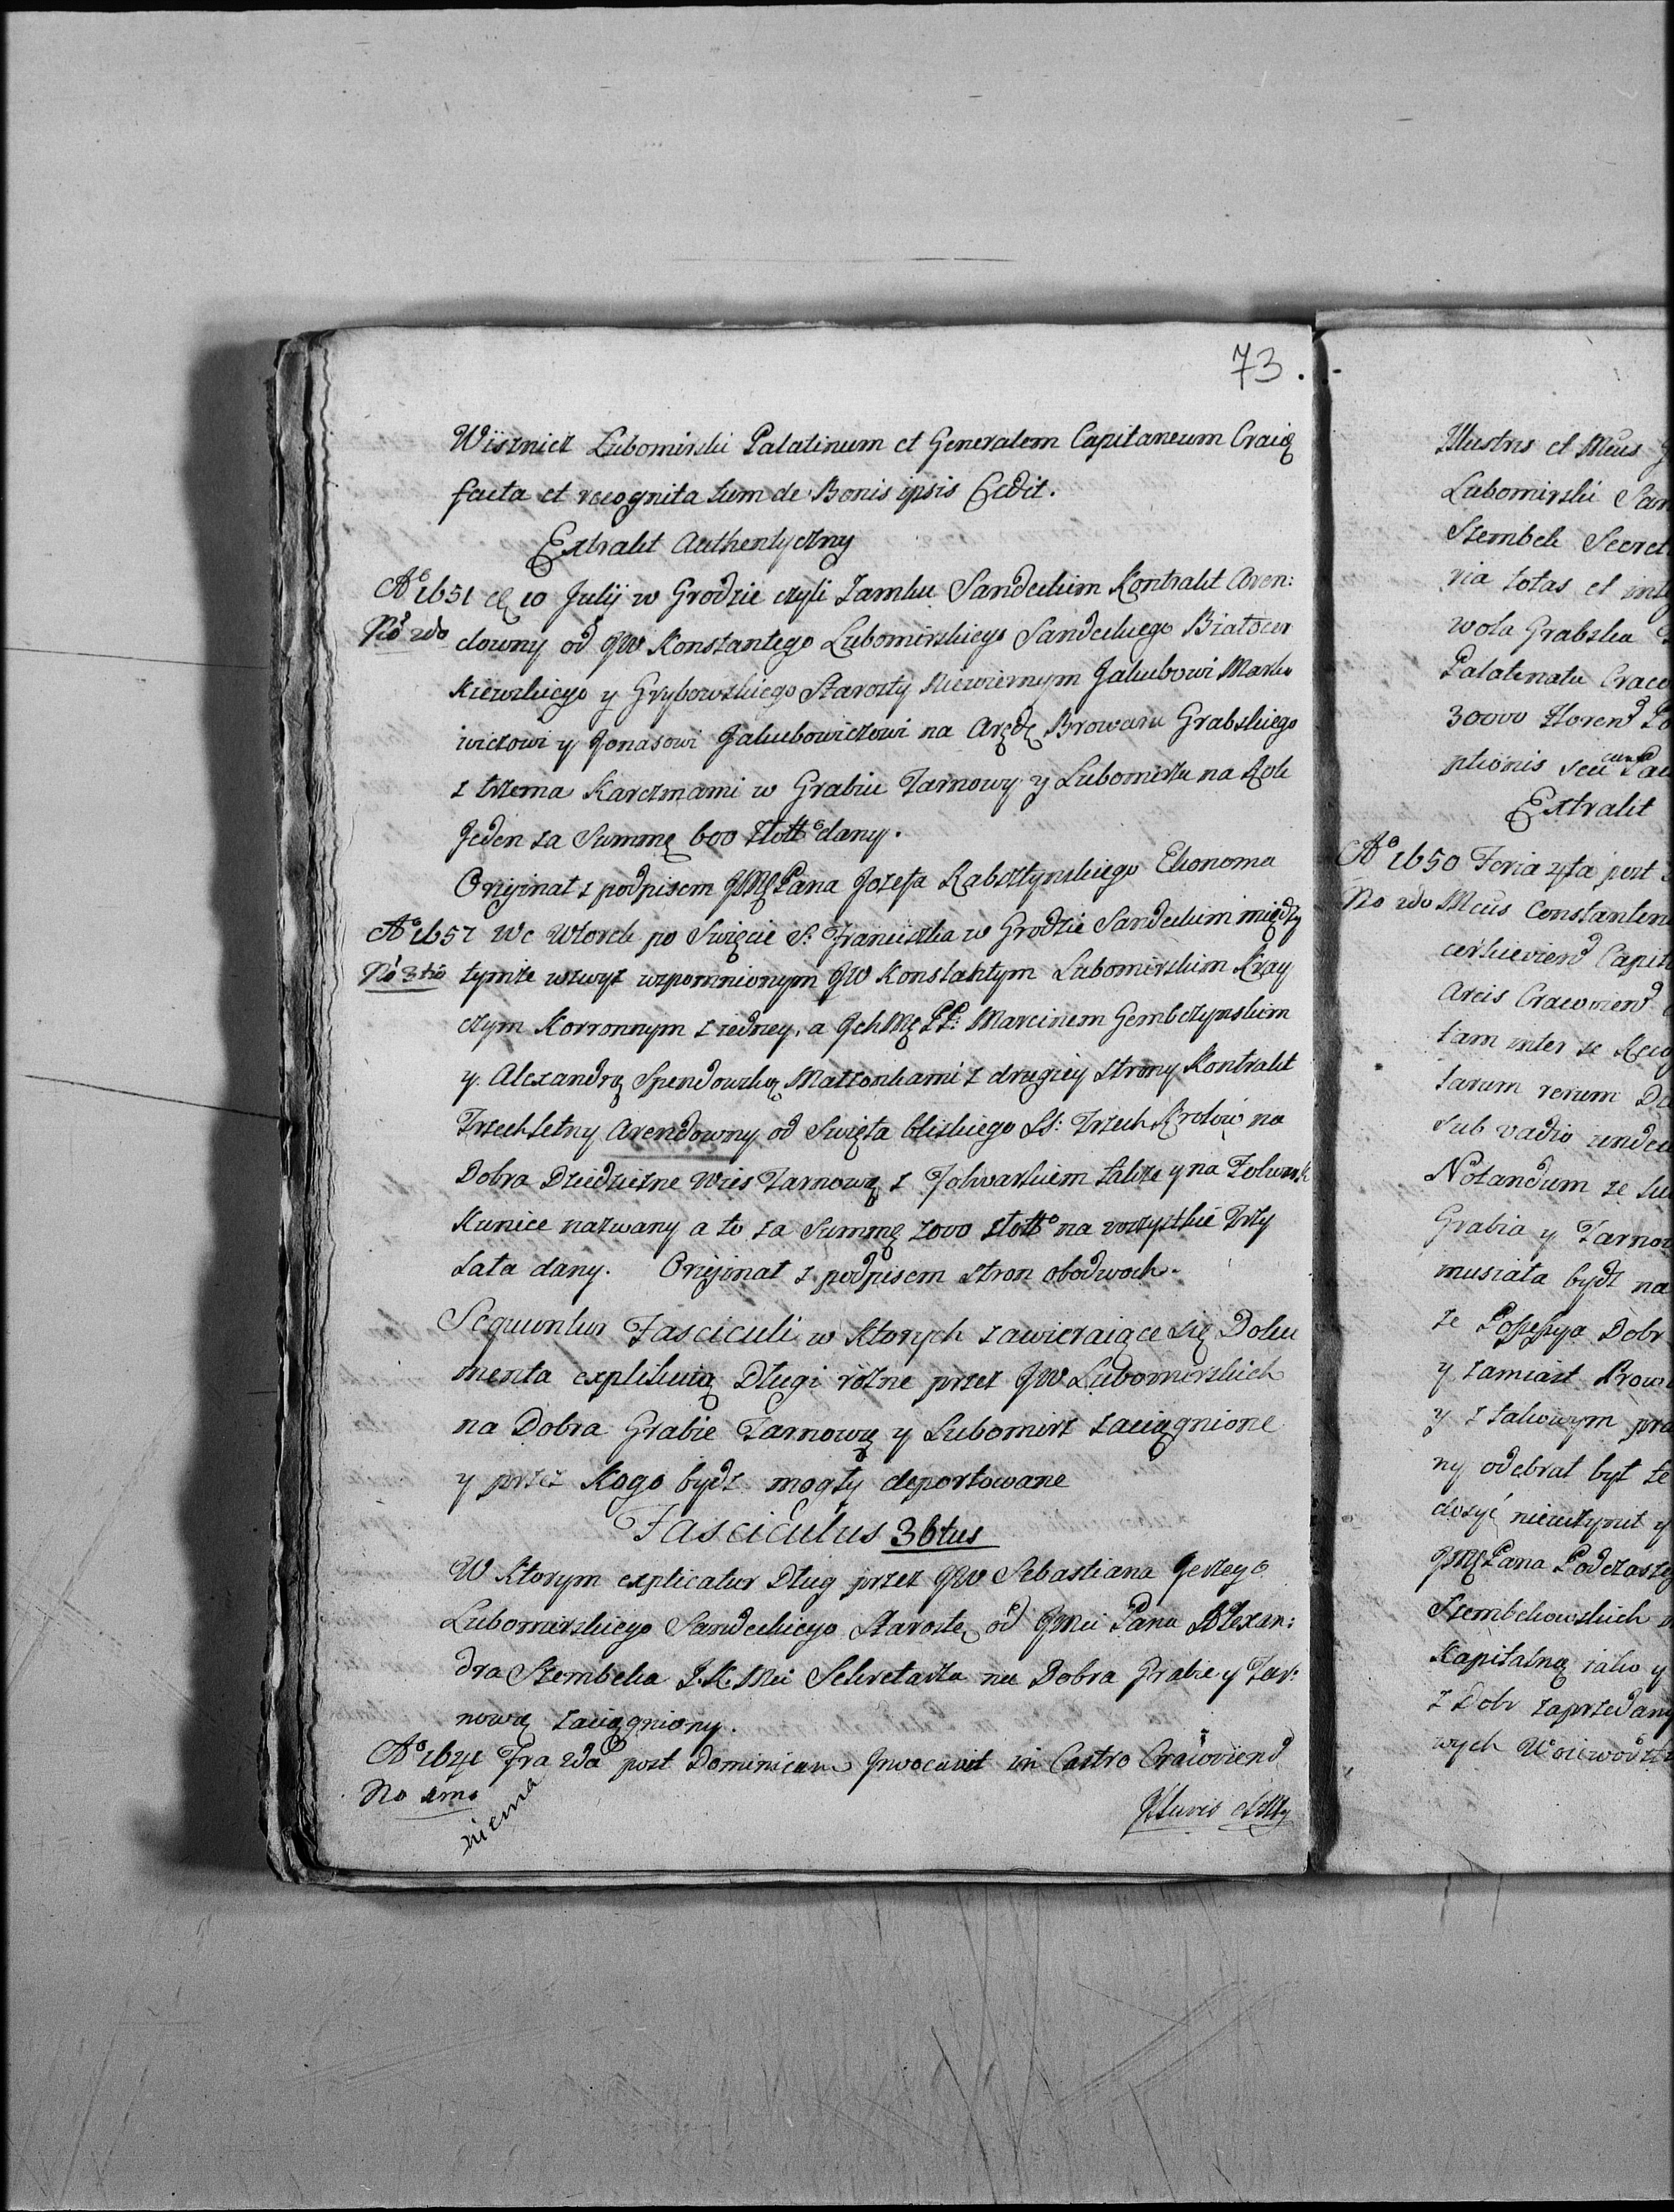 73.
Wisznicz Lubomirski Palatinum et Generalem Capitaneum Craię
facta et recognita tum de Bonis ipsis Cedit.
Extrakt Authentyczny
Aº 1651 10 Julij w Grodzie czyli Zamku Sandeckim Kontrakt Aren:
No 2do downy od JW Konstantego Lubomirskiego Sandeckiego Białocer
kiewskiego y Grybowskiego Starosty Niewiernym Jakubowi Marko
wiczowi y Jonasowi Jakubowiczowi na Arędę Browaru Grabskiego
z trzema Karczmami w Grabiu Tarnowy y Lubomirzu na Rok
Jeden za Summę 600 Złottº dany.
Oryjinał z podpisem JMę Pana Jozefa Rabsztynskiego Ekonoma
Aº 1657 We Wtorek po Swięcie S: Franciszka w Grodzie Sandeckim między
No 3tio tymże wzwyż wspomnionym JW Konstantym Lubomirskim Kray
czym Korronnym z iedney, a JchMę PP: Marcinem Gembczynskim
y Alexandrą Spendowską Małżonkami z drugiey strony Kontrakt
Trzechletny Arendowny od Swięta bliskiego SS: Trzech Krolow na
Dobra Dziedziczne Wies Tarnowę z Folwarkiem także y na Folwark
Kunice nazwany a to za Summę 2000 złottº na wszystkie Trzy
Lata dany. Oryjinał z podpisem stron obodwoch.
Sequuntur Fasciculi w ktorych zawieraiące się Doku
menta explikuią Długi rożne przez JW Lubomirskich
na Dobra Grabie Tarnowę y Lubomirz zaciągnione
y przez kogo bydź mogły deportowane
Fasciculus 36tus
W ktorym explicatur Dług przez JW Sebastiana Jerzego
Lubomirskiego Sandeckiego Starostę od JMci Pana Alexan:
dra Szembeka J.K.Mci Sekretarza na Dobra Grabie y Tar:
nowę zaciągniony.
Aº 1641 Fra 2da post Dominicam Invocavit in Castro Cracoviend
No 1mo
niema
Illustris et Mg
Illustris et Mcus
Lubomirski San
Szembek Secret
ria totas et inte
wola Grabska
Palatinatu Craco
30000 Florend Po
ptionis seu
Extrakt
Aº 1650 Feria 4ta post
No 2do Mcus Constantin
cerkieviend Capit
Arcis Cracoviend
tam inter se Reco
tarum rerum
sub vadio
Notandum że
Grabia y Tarnow
musiała bydź na
że Possessya Dobr
y zamiast Brow
y z takowym pra
ny odebrał był te
dosyć nieuczynił y
JMę Pana Podczasze
Szembekowskich
Kapitalną iako y
z Dobr zaprzedany
wych Woiewodzt